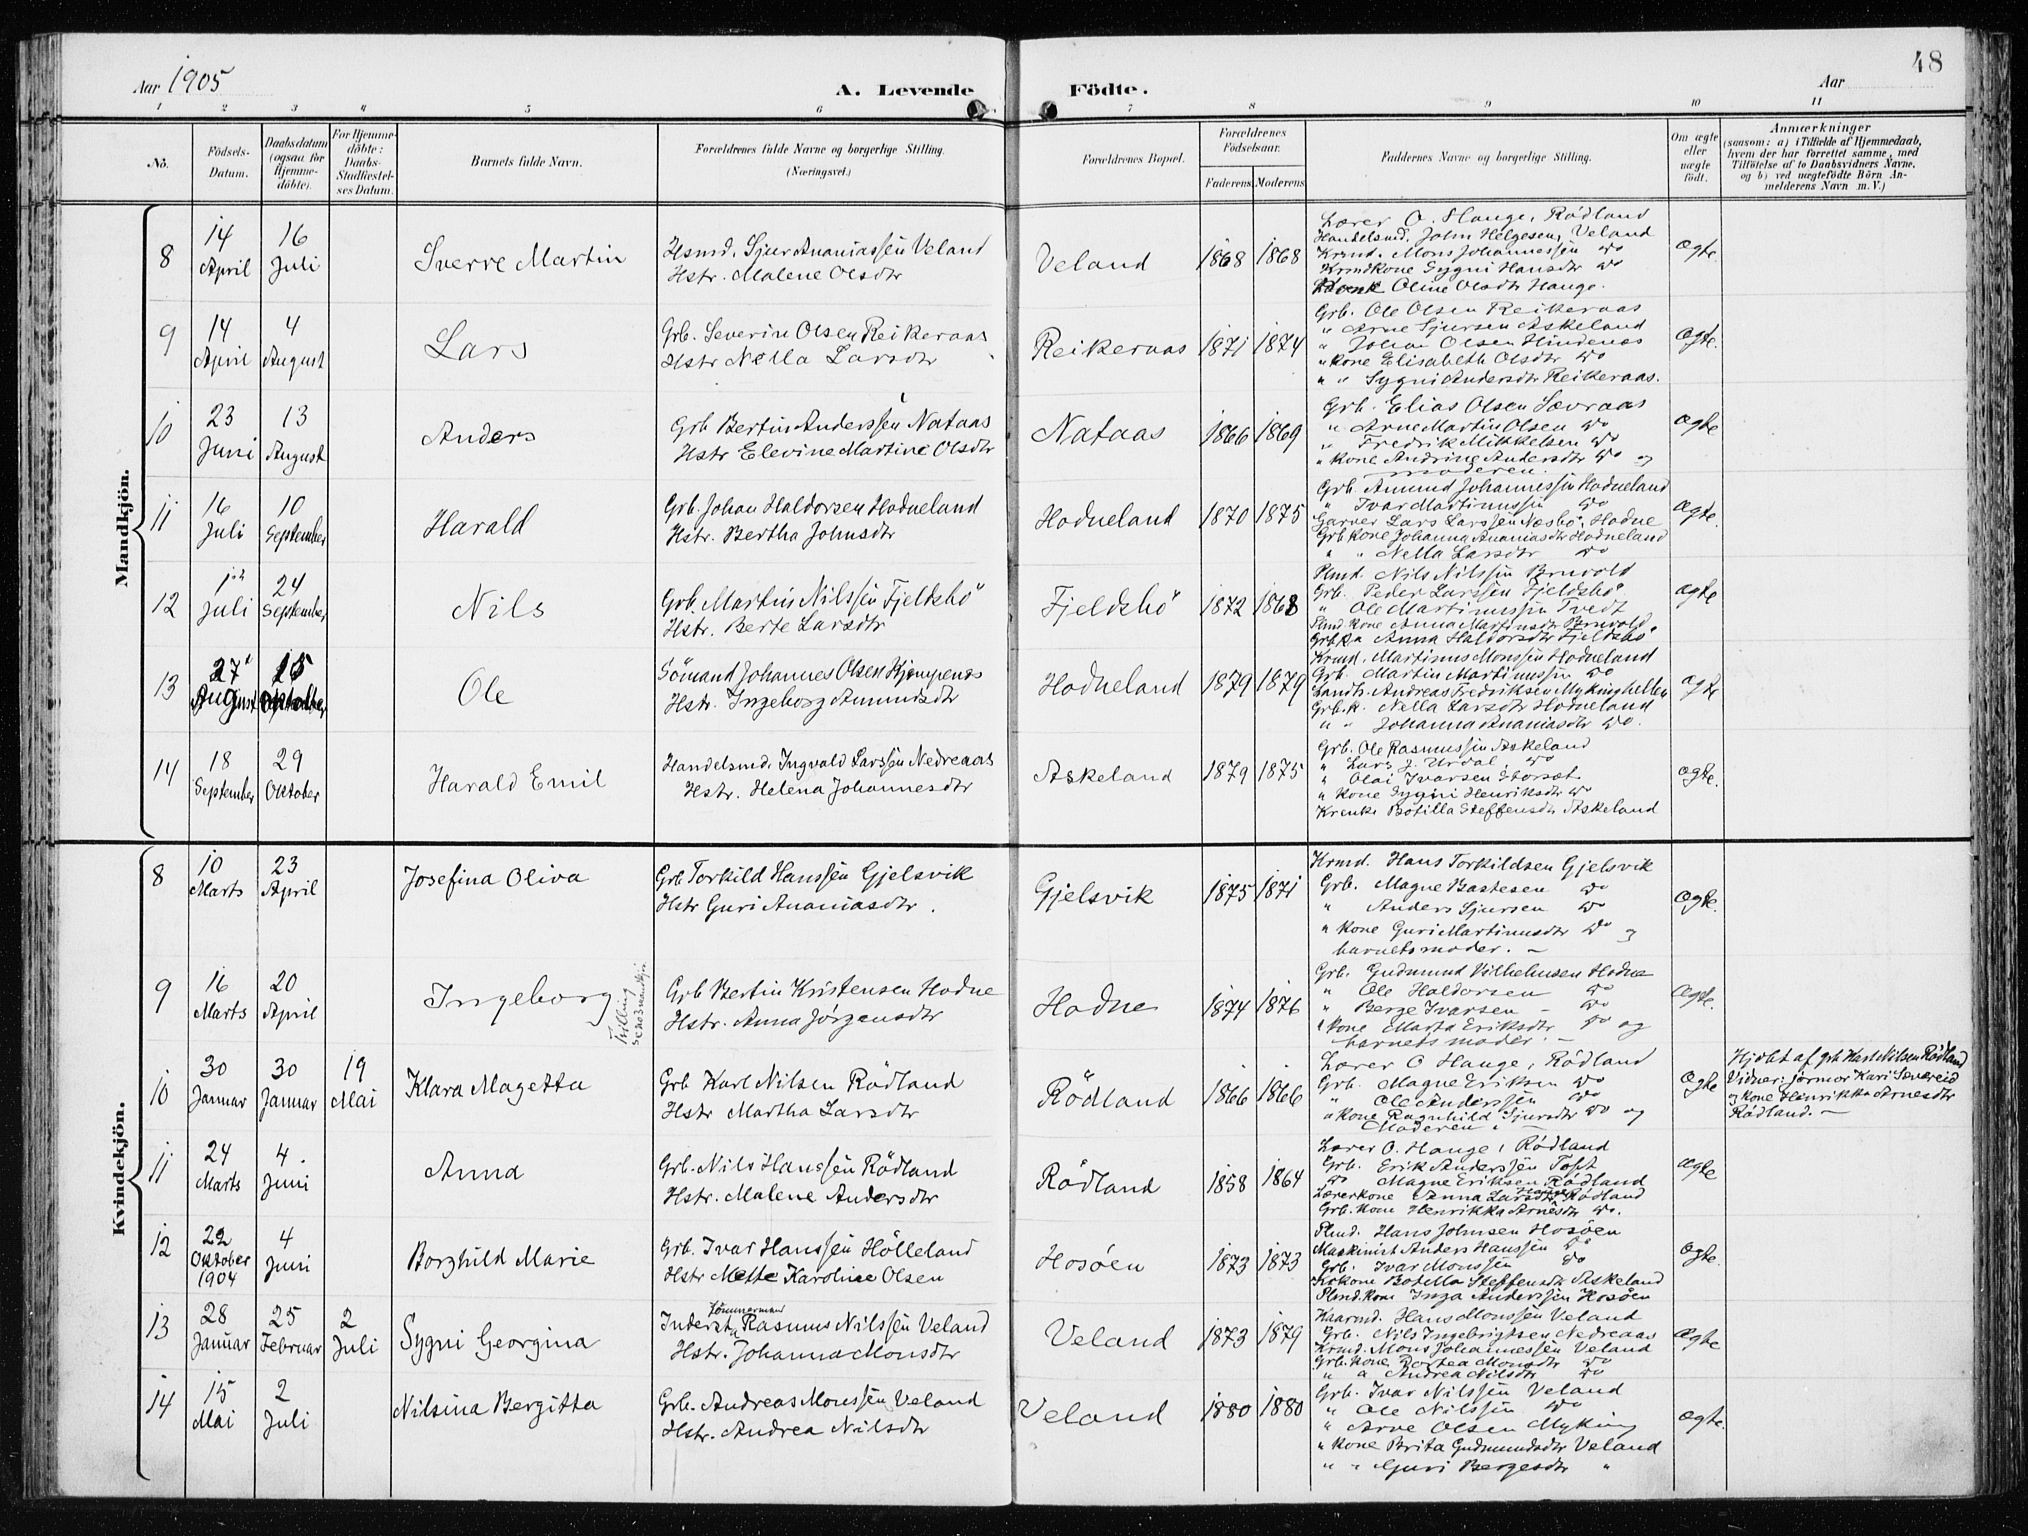 Aar 1905
A. Levende Födte.
Aar
48
1 2 3 4 5 6 7 8 9 10 11
No.
Födsels-Datum.
Daabsdatum (ogsaa for Hjemme-döbte).
For Hjemme-döbte: Daabs-Stadfæstel-ses Datum.
Barnets fulde Navn.
Forældrenes fulde Navne og borgerlige Stilling. (Næringsvei.)
Forældrenes Bopæl.
Forældrenes Födselsaar.
Faderens. Moderens.
Faddernes Navne og borgerlige Stilling.
Om ægte eller uægte födt.
Anmærkninger
(saasom: a) i Tilfælde af Hjemmedaab, hvem der har forrettet samme, med Tilföielse af to Daabsvidners Navne, og b) ved uægtefödte Börn An-melderens Navn m. V.)
Mandkjön.
8 14 April 16 Juli Sverre Martin
Hsmd. Sjur Ananiassen Veland
Hstr. Malene Olsdtr
Veland 1868 1868
Lærer O. Hauge, Rödland
Handelsmd. John Helgesen, Veland
Krmd. Mons Johannessen do
Krmdkone Sygni Hansdtr do
Oline Olsdtr Hauge.
ægte.
9 14 April 4 August Lars
Grb. Severin Olsen Reikeraas
Hstr Nella Larsdtr
Reikeraas 1871 1874
Grb. Ole Olsen Reikeraas
" Arne Sjursen Askeland
" Johan Olsen Hindenes
" kone Elisabeth Olsdtr do
" " Sygni Andersdtr Reikeraas.
ægte.
10 23 Juni 13 August Anders
Grb Bertin Anderssen Nataas
Hstr Elevine Martine Olsdtr
Nataas 1866 1869
Grb. Elias Olsen Sævraas
" Arne Martin Olsen do
" Fredrik Mikkelsen do
" kone Andrine Andersdtr do og
moderen.
ægte
11 16 Juli 10 September Harald
Grb. Johan Haldorsen Hodneland
Hstr. Bertha Johnsdtr
Hodneland 1870 1875
Grb. Amund Johannessen Hodneland
" Ivar Martinussen do
Garver Lars Larssen Næsbö, Hodne
Grb kone Johanna Ananiasdtr Hodneland
" " Nella Larsdtr do
ægte.
12 Juli 24 September Nils
Grb. Martin Nilssen Fjeldsbö
Hstr. Berte Larsdtr
Fjeldsbö 1872 1868
Plmd. Nils Nilssen Bruvold
Grb. Peder Larssen Fjeldsbö
" Ole Martinussen Tvedt
Plmd kone Anna Martinsdtr Bruvold
Grb.k. Anna Haldorsdtr Fjeldsbö
ægte
13 27 August 15 Oktober Ole
Sömand Johannes Olsen Kjempenes
Hstr. Ingeborg Amundsdtr
Hodneland 1879 1879
Krmd. Martinus Monssen Hodneland
Grb. Martin Martinussen do
Landh. Andreas Fredriksen Mykinghellen
Grb.k. Nella Larsdtr Hodneland
" " Johanna Ananiasdtr do.
ægte
14 18 September 29 Oktober Harald Emil
Handelsmd. Ingvald Larssen Nedreaas
Hstr. Helena Johannesdtr
Askeland 1879 1875
Grb. Ole Rasmussen Askeland
" Lars J. Urdal. do
" Olai Ivarsen Storsæt
" kone Sygni Henriksdtr do
Botilla Steffensdtr Askeland
ægte.
Kvindekjön.
8 10 Marts 23 April Josefina Oliva
Grb Torkild Hanssen Gjelsvik
Hstr Guri Ananiasdtr.
Gjelsvik 1875 1871
Krmd. Hans Torkildsen Gjelsvik
Grb. Magne Bastesen do
" Anders Sjursen do
" kone Guri Martinusdtr do og
barnets moder. –
ægte.
9 16 Marts 20 April Ingeborg
Tvilling
Grb Bertin Kristensen Hodne
Hstr. Anna Jørgensdtr
Hodne 1874 1876
Grb. Gudmund Vilhelmsen Hodne
" Ole Haldorsen do
" Berge Ivarsen – do
" kone Marta Eriksdtr do og
barnets moder. –
Ægte.
10 30 Januar 30 Januar 19 Mai Klara Magetta
Grb Karl Nilsen Rödland
Hstr Martha Larsdtr
Rödland 1866 1866
Lærer O Hauge, Rödland
Grb. Magne Eriksen do
" Ole Anderssen do
" kone Ragnhild Sjursdtr do og
Moderen. –
Ægte
Hjdöbt af grb Karl Nilsen Rödland
Vidner: jormor Kari Sævereid
og kone Henrikka Arnesdtr
Rödland. –
11 24 Marts 4 Juni Anna
Grb. Nils Hanssen Rödland
Hstr. Malene Andersdtr
Rödland 1858 1864
Lærer O. Hauge, Rödland
Grb. Erik Anderssen Toft
do Magne Eriksen Rödland
Lærerkone Anna Larsdtr Hauge Rödland
Grb. kone Henrikka Arnesdtr do.
Ægte
12 22 Oktober 1904 4 Juni Borghild Marie
Grb. Ivar Hanssen Hölleland
Hstr Mette Karoline Olsen
Hosöen 1873 1873
Plmd. Hans Johnsen Hosöen
Maskinist Anders Hanssen do
Grb. Ivar Monssen do
kone Botella Steffensdtr Askeland
Plmd.kone Inga Anderssen Hosöen
Ægte.
13 28 Januar 25 Februar 2 Juli Sygni Georgina
Tömmermand
Inderst Rasmus Nilssen Veland
Hstr. Johanna Monsdtr
Veland 1873 1879
Kaarmd. Hans Monssen Veland
Grb. Nils Ingebrigtsen Nedreaas
Krmd. Mons Johannessen Veland
Grb. kone Dortea Monsdtr do
" " Andrea Nilsdtr do
Ægte
14 15 Mai 2 Juli Nilsina Bergitta
Grb. Andreas Monssen Veland
Hstr. Andrea Nilsdtr
Veland 1880 1880
Grb. Ivar Nilssen Veland
" Ole Nilssen do
" Arve Olsen Myking
" kone Brita Gudmundsdtr Veland
" " Guri Bergesdtr "
ægte.